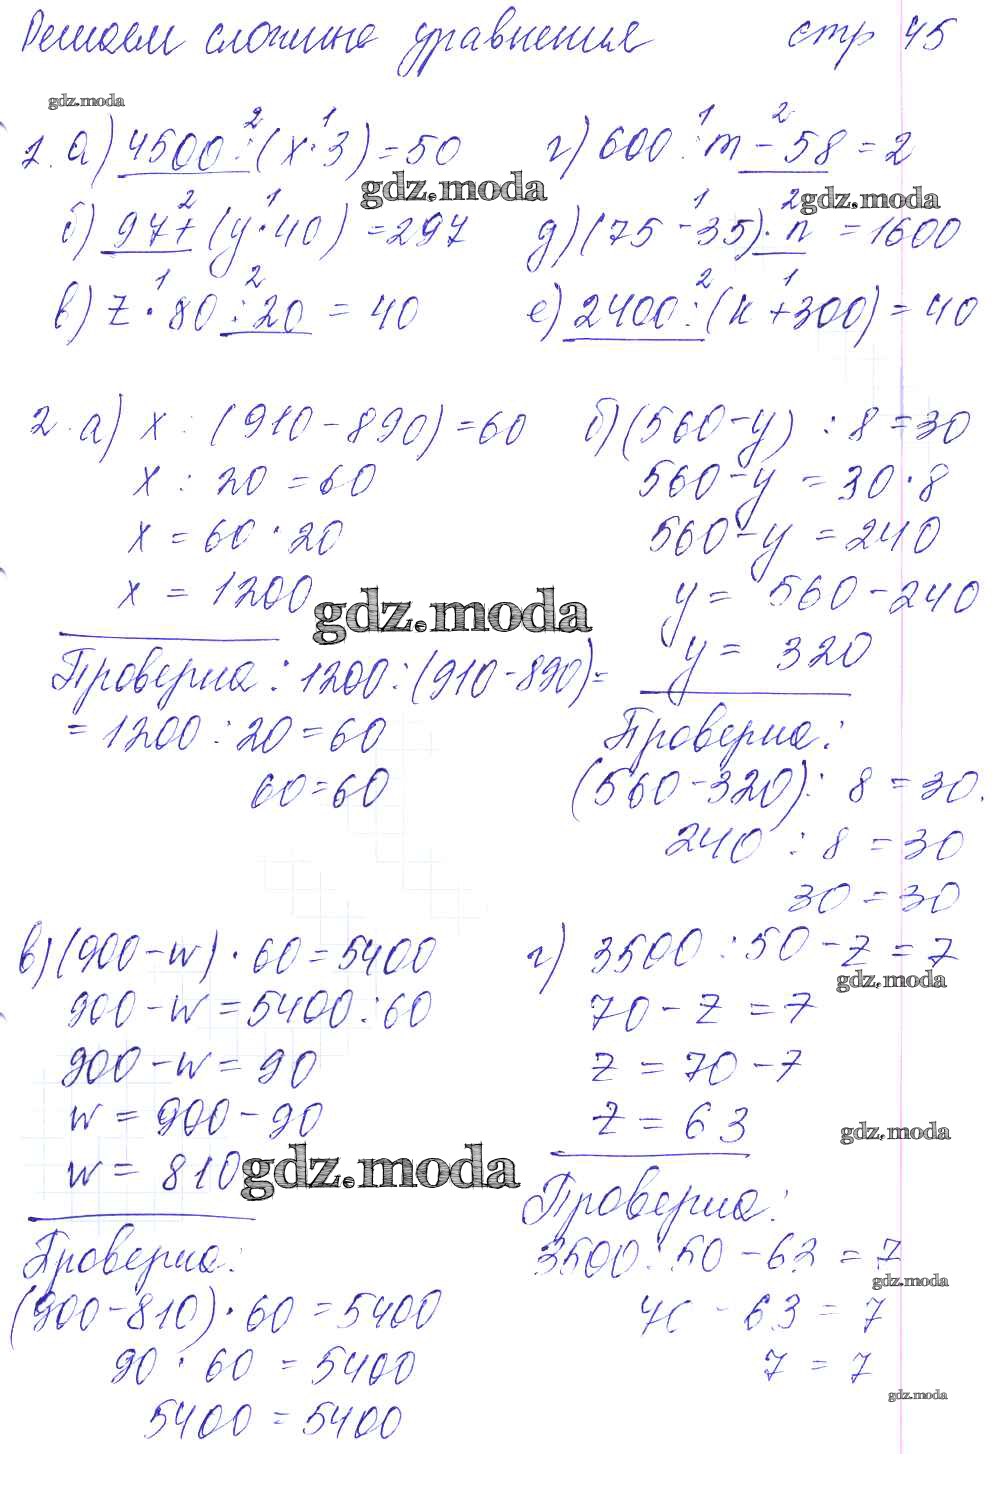 Решаем сложные уравнения стр 45
gdz.moda
1. а) 4500 : (x · 3) = 50
2 1
г) 600 : m - 58 = 2
1 2
gdz.moda
gdz.moda
б) 97 + (y · 40) = 297
2 1
д) (75 - 35) · n = 1600
1 2
в) z · 80 : 20 = 40
1 2
е) 2400 : (k + 300) = 40
2 1
2. а) x : (910 - 890) = 60
x : 20 = 60
x = 60 · 20
x = 1200
gdz.moda
Проверка : 1200 : (910 - 890) =
= 1200 : 20 = 60
60 = 60
б) (560 - y) : 8 = 30
560 - y = 30 · 8
560 - y = 240
y = 560 - 240
y = 320
Проверка :
(560 - 320) : 8 = 30.
240 : 8 = 30
30 = 30
в) (900 - w) · 60 = 5400
900 - w = 5400 : 60
900 - w = 90
w = 900 - 90
w = 810
gdz.moda
Проверка :
(900 - 810) · 60 = 5400
90 · 60 = 5400
5400 = 5400
г) 3500 : 50 - z = 7
gdz.moda
70 - z = 7
z = 70 - 7
z = 63
gdz.moda
Проверка :
3500 : 50 - 63 = 7
gdz.moda
70 - 63 = 7
7 = 7
gdz.moda